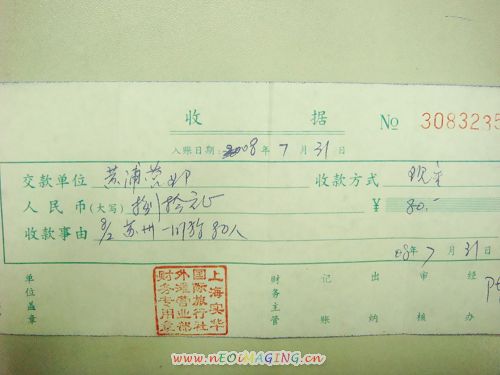 收 据
№ 3083235
入账日期: 2008 年 7 月 31 日
交款单位 黄浦营业部 收款方式 现金
人民币(大写) 捌拾元正 ¥ 80.-
收款事由 8/2 苏州一日游 80/人
08年 7 月 31 日
单位盖章
上海实华国际旅行社外滩营业部财务专用章
财务主管
记账
出纳
审核
经办
www.nEOiMAGING.cn